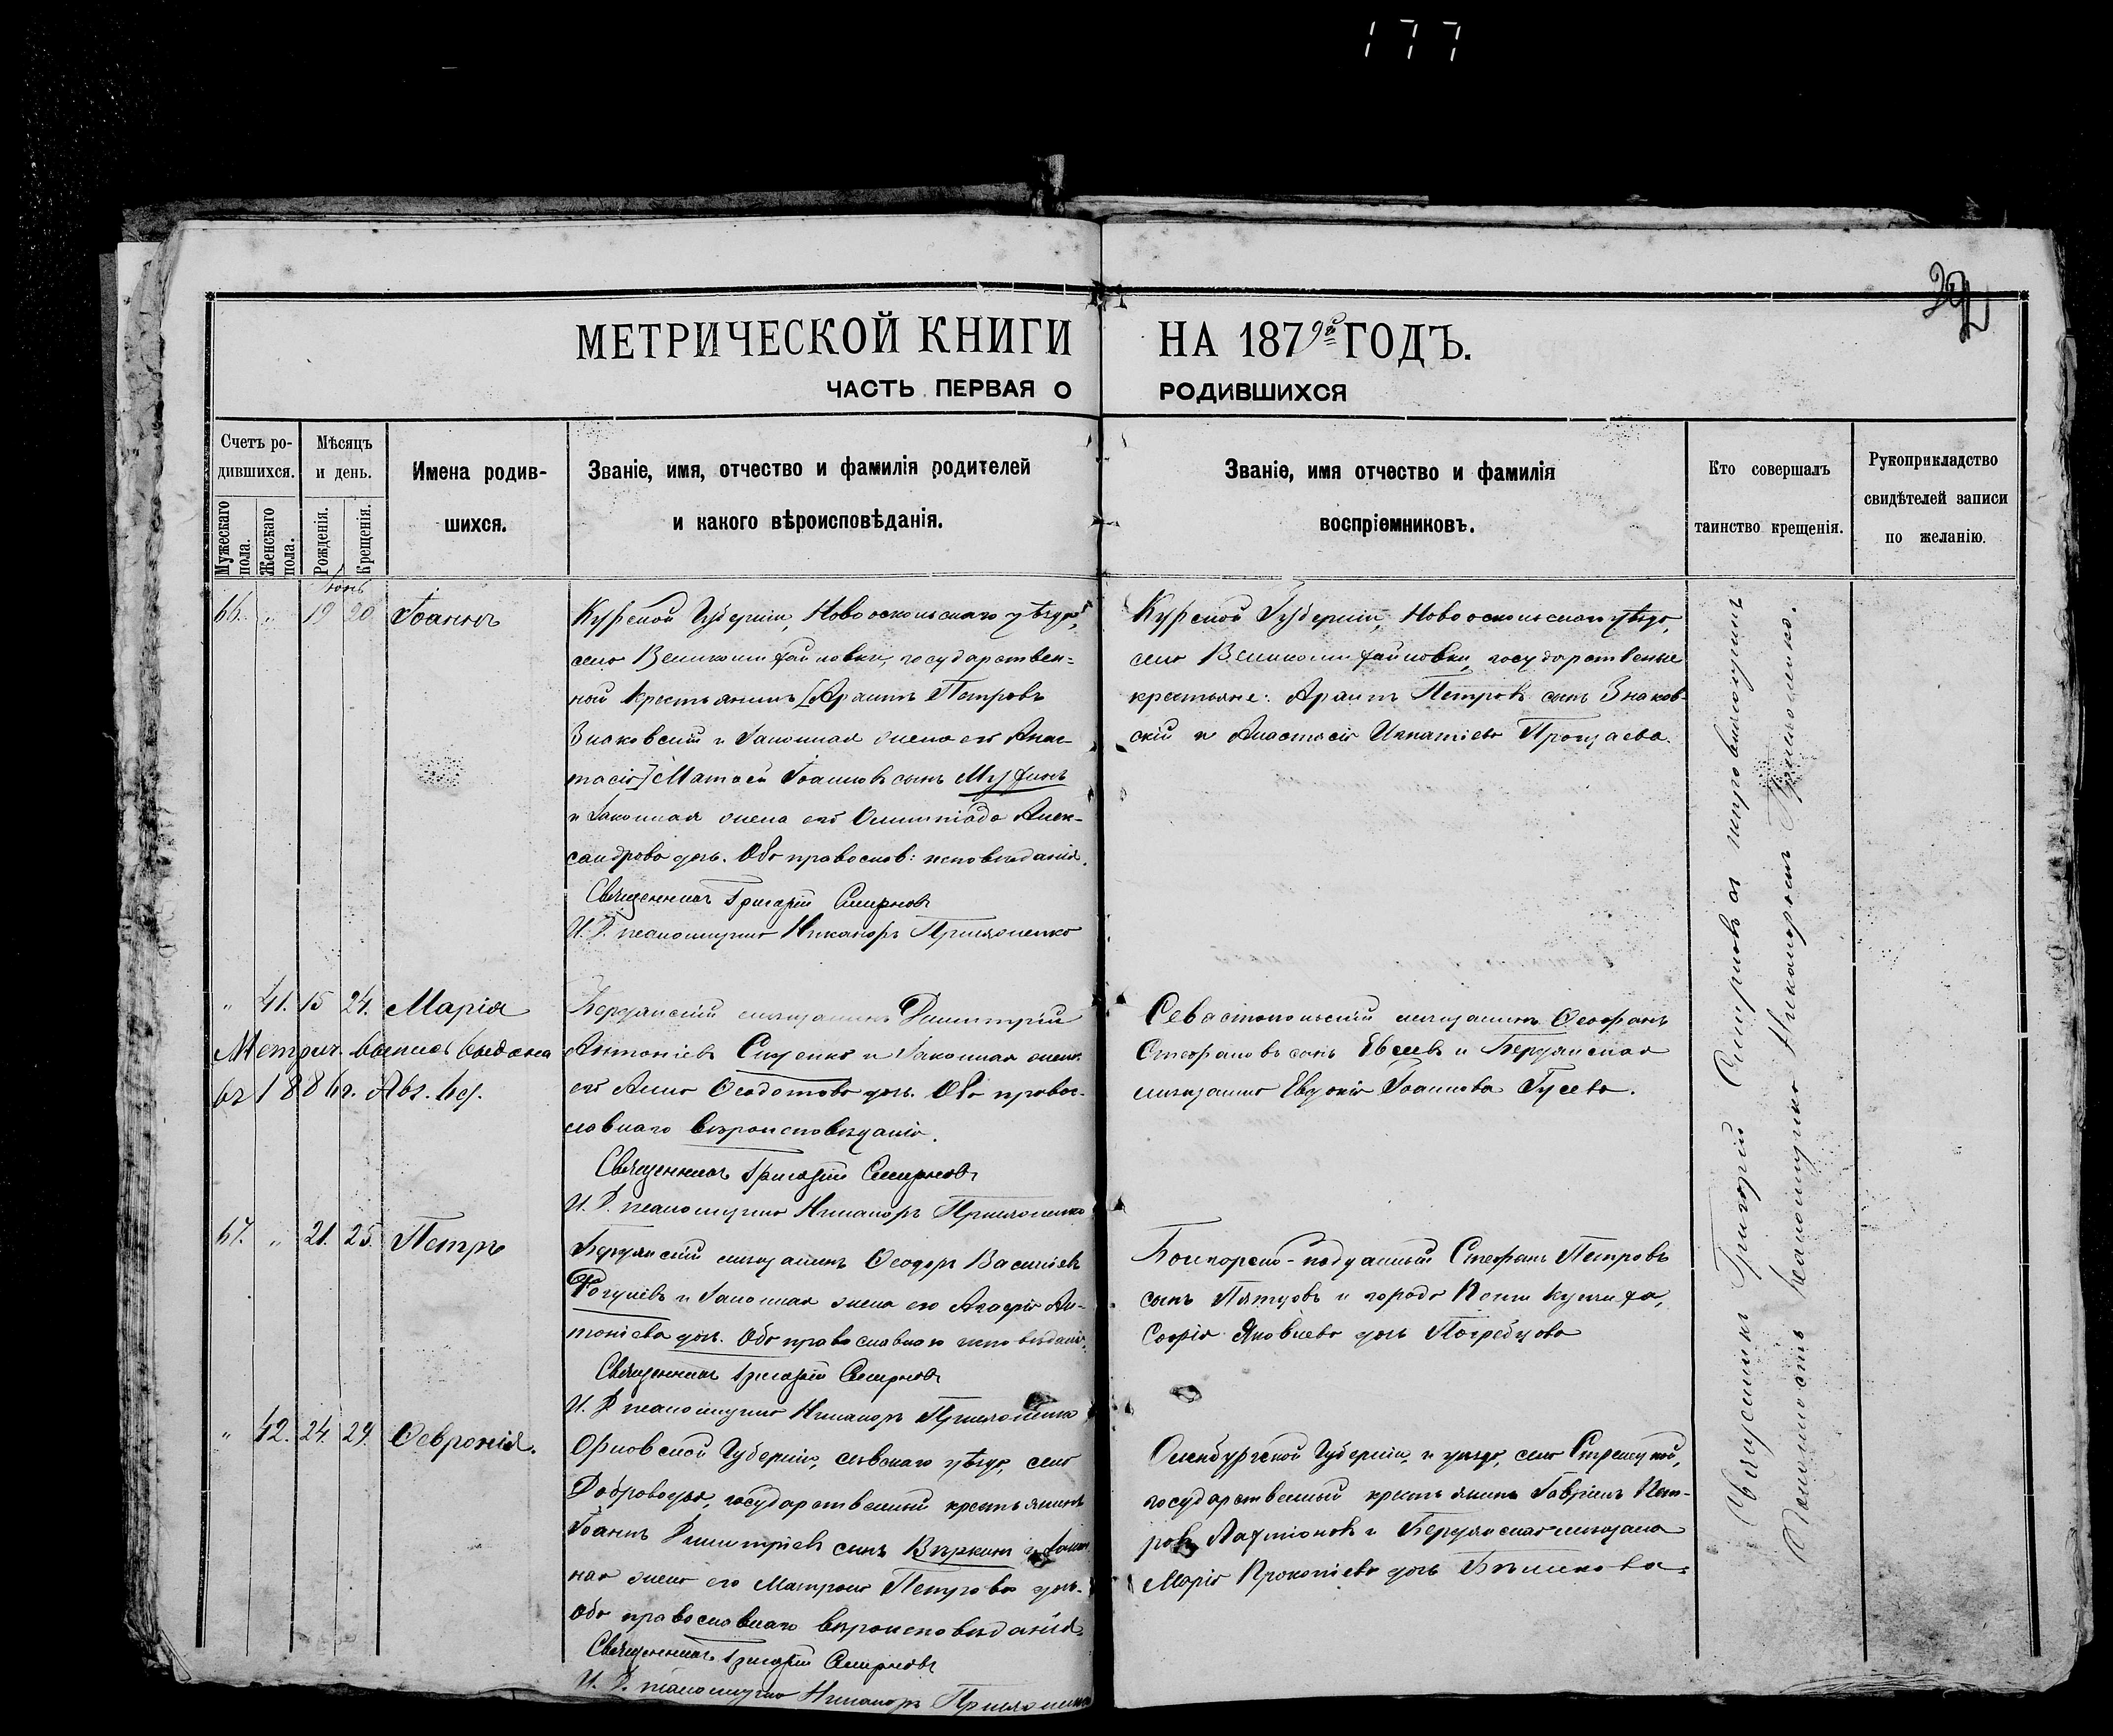 177
МЕТРИЧЕСКОЙ КНИГИ НА 1879й ГОДЪ.
ЧАСТЬ ПЕРВАЯ О РОДИВШИХСЯ
Счетъ ро-
дившихся.
Мужескаго пола.
Женскаго пола.
Мѣсяцъ
и день.
Рожденія.
Крещенія.
Имена родив-
шихся.
Званіе, имя, отчество и фамилія родителей
и какого вѣроисповѣданія.
Званіе, имя отчество и фамилія
воспріемниковъ.
Кто совершалъ
таинство крещенія.
Рукоприкладство
свидѣтелей записи
по желанію.
Іюнь
66. " 19 20 Іоаннъ
Курской Губерніи, Новооскольскаго уѣзда,
село Великомихайловки, государствен-
ной крестьянинъ [Араитъ Петровъ
Знаковскій и Законная жена его Анас-
тасія] Матѳей Іоанновъ сынъ
и Законная жена его Олимпіада Алек-
сандрова дочь. Оба православ: исповѣданія.
Священникъ Григорій Смирновъ
И. Д. псаломщика Никаноръ
Курской Губерніи, Новооскольскаго уѣзда,
село Великомихайловки, государственые
крестьяне: Араитъ Петровъ сынъ Знаков-
скій и Анастасія Игнатіева
" 41. 15 24. Марія
Метрич. выпись выдана
въ 1886 г. Авг.
Бердянскій мѣщанинъ Димитрій
Антоніевъ и Законная жена
его Анна Ѳеодотова дочь. Оба правос-
лавнаго вѣроисповѣданія.
Священникъ Григорій Смирновъ
И. Д. псаломщика Никаноръ
Севастопольскій мѣщанинъ Ѳеофанъ
Стефановъ сынъ Евсеевъ и Бердянская
мѣщанка Евдокія Іоаннова Гусева.
67. " 21. 25. Петръ
Бердянскій мѣщанинъ Ѳеодоръ Василіевъ
и Законная жена его Агафія Ан-
тоніева дочь. Оба православнаго исповѣданія.
Священникъ Григорій Смирновъ
И. Д. псаломщика Никаноръ
Стефанъ Петровъ
сынъ и города
Софія Яковлева дочь Погребцова
" 42. 24. 29. Ѳевронія.
Орловской Губерніи, сѣвскаго уѣзда, село
Доброводья, государственный крестьянинъ
Іоаннъ Димитріевъ сынъ и Закон-
ная жена его Матрона Петрова дочь.
Оба православнаго вѣроисповѣданія.
Священникъ Григорій Смирновъ
И. Д. псаломщика Никаноръ
Оренбургской Губерніи, и уѣзда, село
государственный крестьянинъ Гавріилъ Пет-
ровъ и Бердянская мѣщанка
Марія Прокопіева дочь
Священникъ Григорій Смирновъ съ
Должность псаломщика Никаноромъ